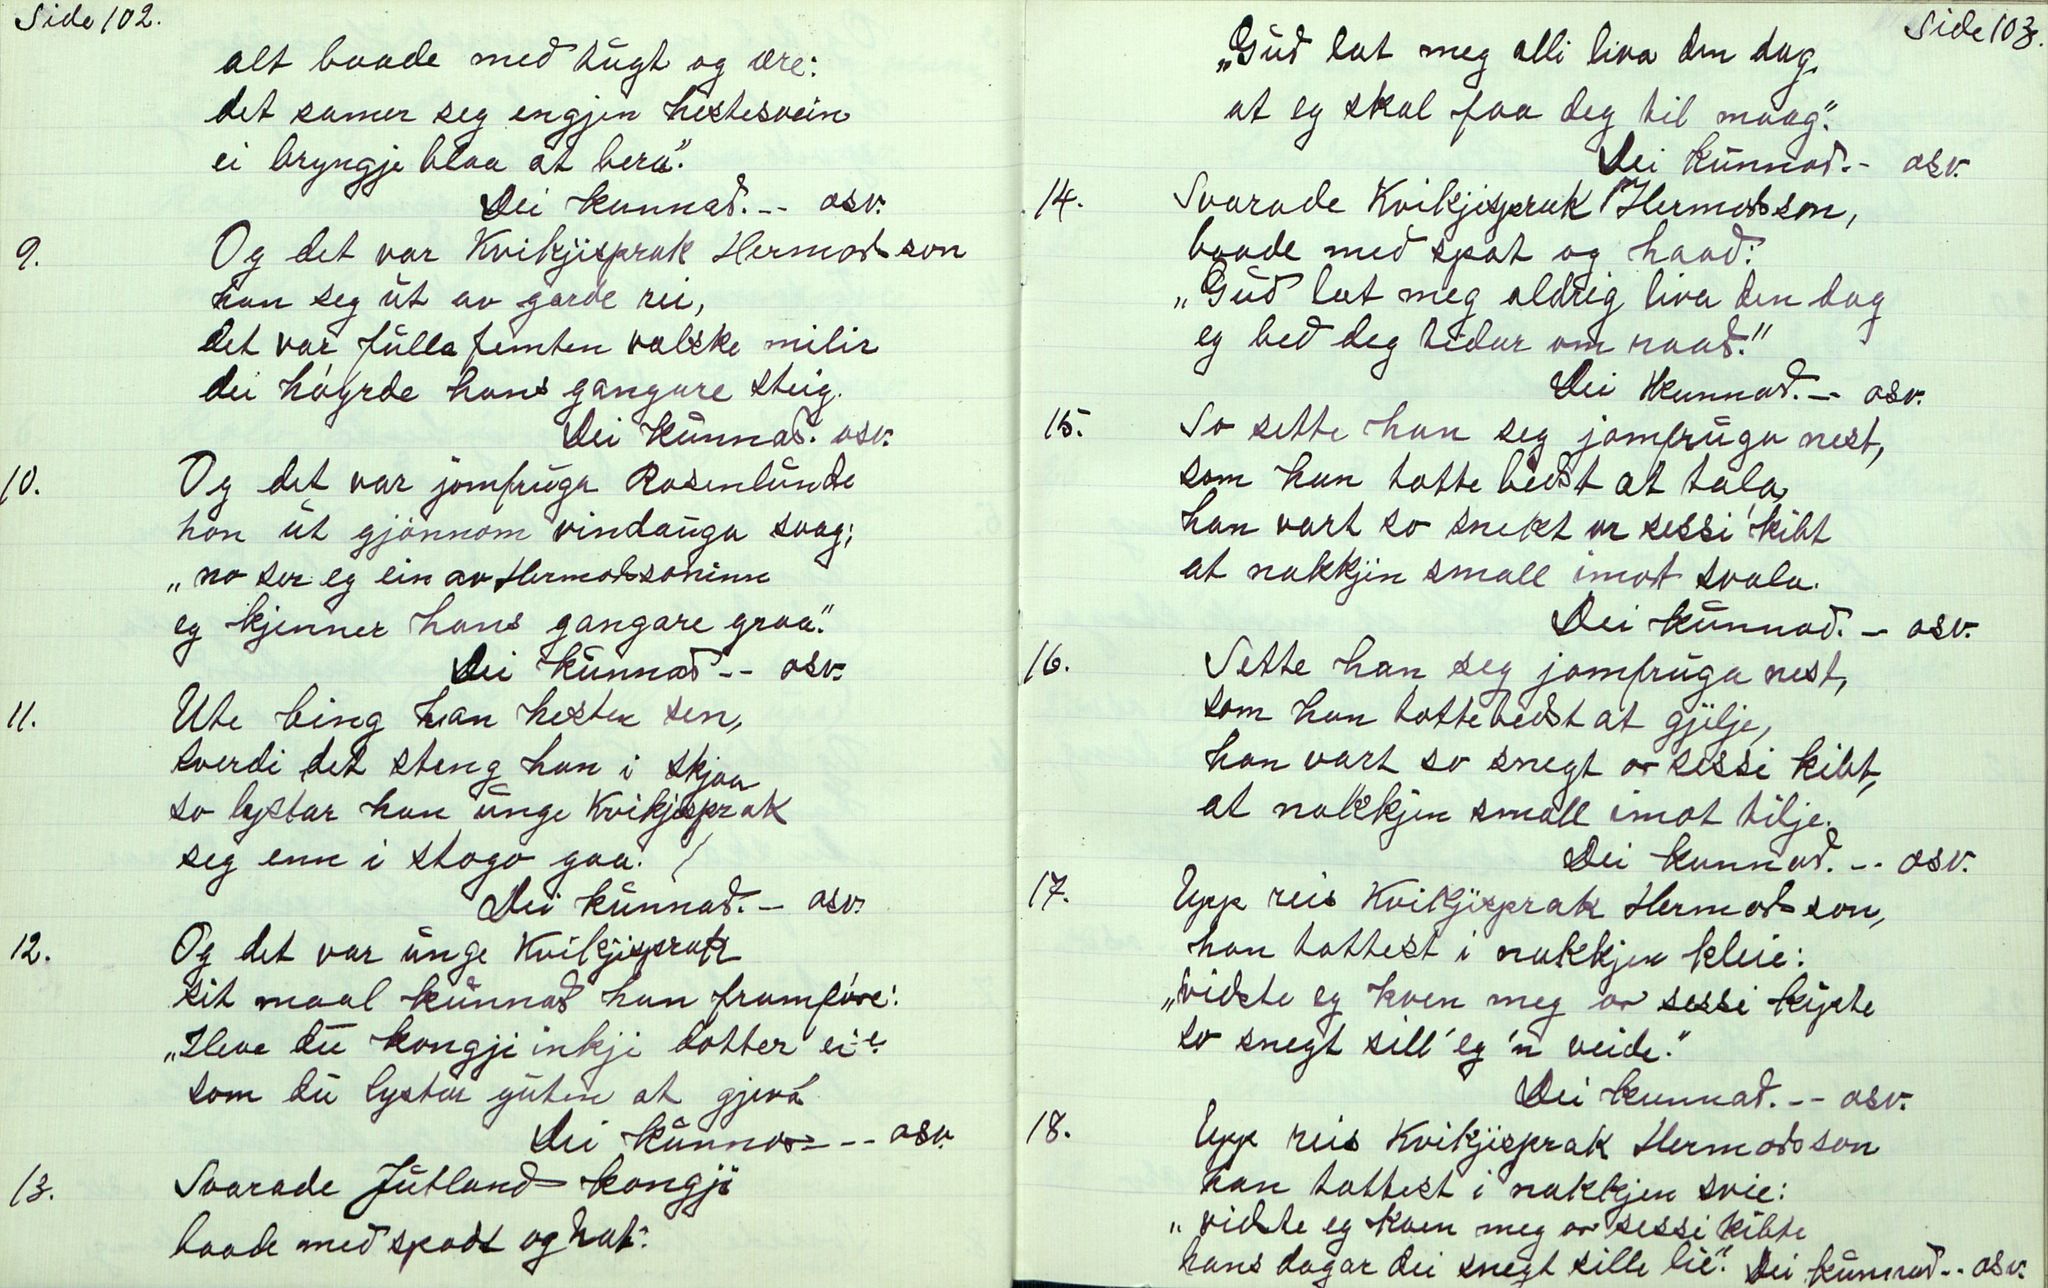 Side 102.
alt baade med tügt og ære:
det samer seg engjen hestesvein
ei bryngje blaa at bera."
Dei kunnad. -- osv.
9. Og det var Kvikjisprak Hermodson
han seg üt av garde rei,
det var fülla femten valske milir
dei hóyrde hans gangare steig.
Dei künnad. osv.
10. Og det var jomfrüga Rosenlünde
hon üt gjönnom vindaüga svag;
„no ser eg ein av Hermodsoninn
eg kjenner hans gangare graa."
Dei künnad -- osv.
11. Ute bing han hesten sen,
sverdi det steng han i skjaa
so lystar han ünge Kvikjisprak
seg enn i stogo gaa.
Dei künnad. - osv.
12. Og det var ünge Kvikjisprak
sit maal künnad han framföre:
„Heve dü kongji inkji dotter ei e
som dü lystar güten at gjeva
Dei künnad -- osv.
13. Svarade Jütland kongji
baade med spodt og hat:
Side 103.
„Güd lat meg alli liva den dag,
at eg skal faa deg til maag."
Dei künnad. -- osv.
14. Svarade Kvikjisprak Hermodson,
baade med spot og haad:
„Güd lat meg aldrig liva den dag
eg bed deg tidar om raad."
Dei kunnad. - osv.
15. So sette han seg jomfrüga nest,
som han totte bedst at tala,
han vart so snekt or sessi kibt
at nakkjin small imot svala.
Dei künnad. - osv.
16. Sette han seg jomfrüga nest,
som han totte bedst at gjilje,
han vart so snegt or sessi kibt,
at nakkjen small imot tilje.
Dei kunnad. -- osv.
17. Upp reis Kvikjisprak Hermodson,
han tottest i nakkjen kleie:
„vidste eg kven meg or sessi kipte
so snegt sill' eg 'n veide."
Dei kunnad. -- osv.
18. Upp reis Kvikjisprak Hermodson
han tottest i nakkjen svie:
„vidste eg kven meg or sessi kibte
hans dagar dei snegt sille lie." Dei künnad -- osv.